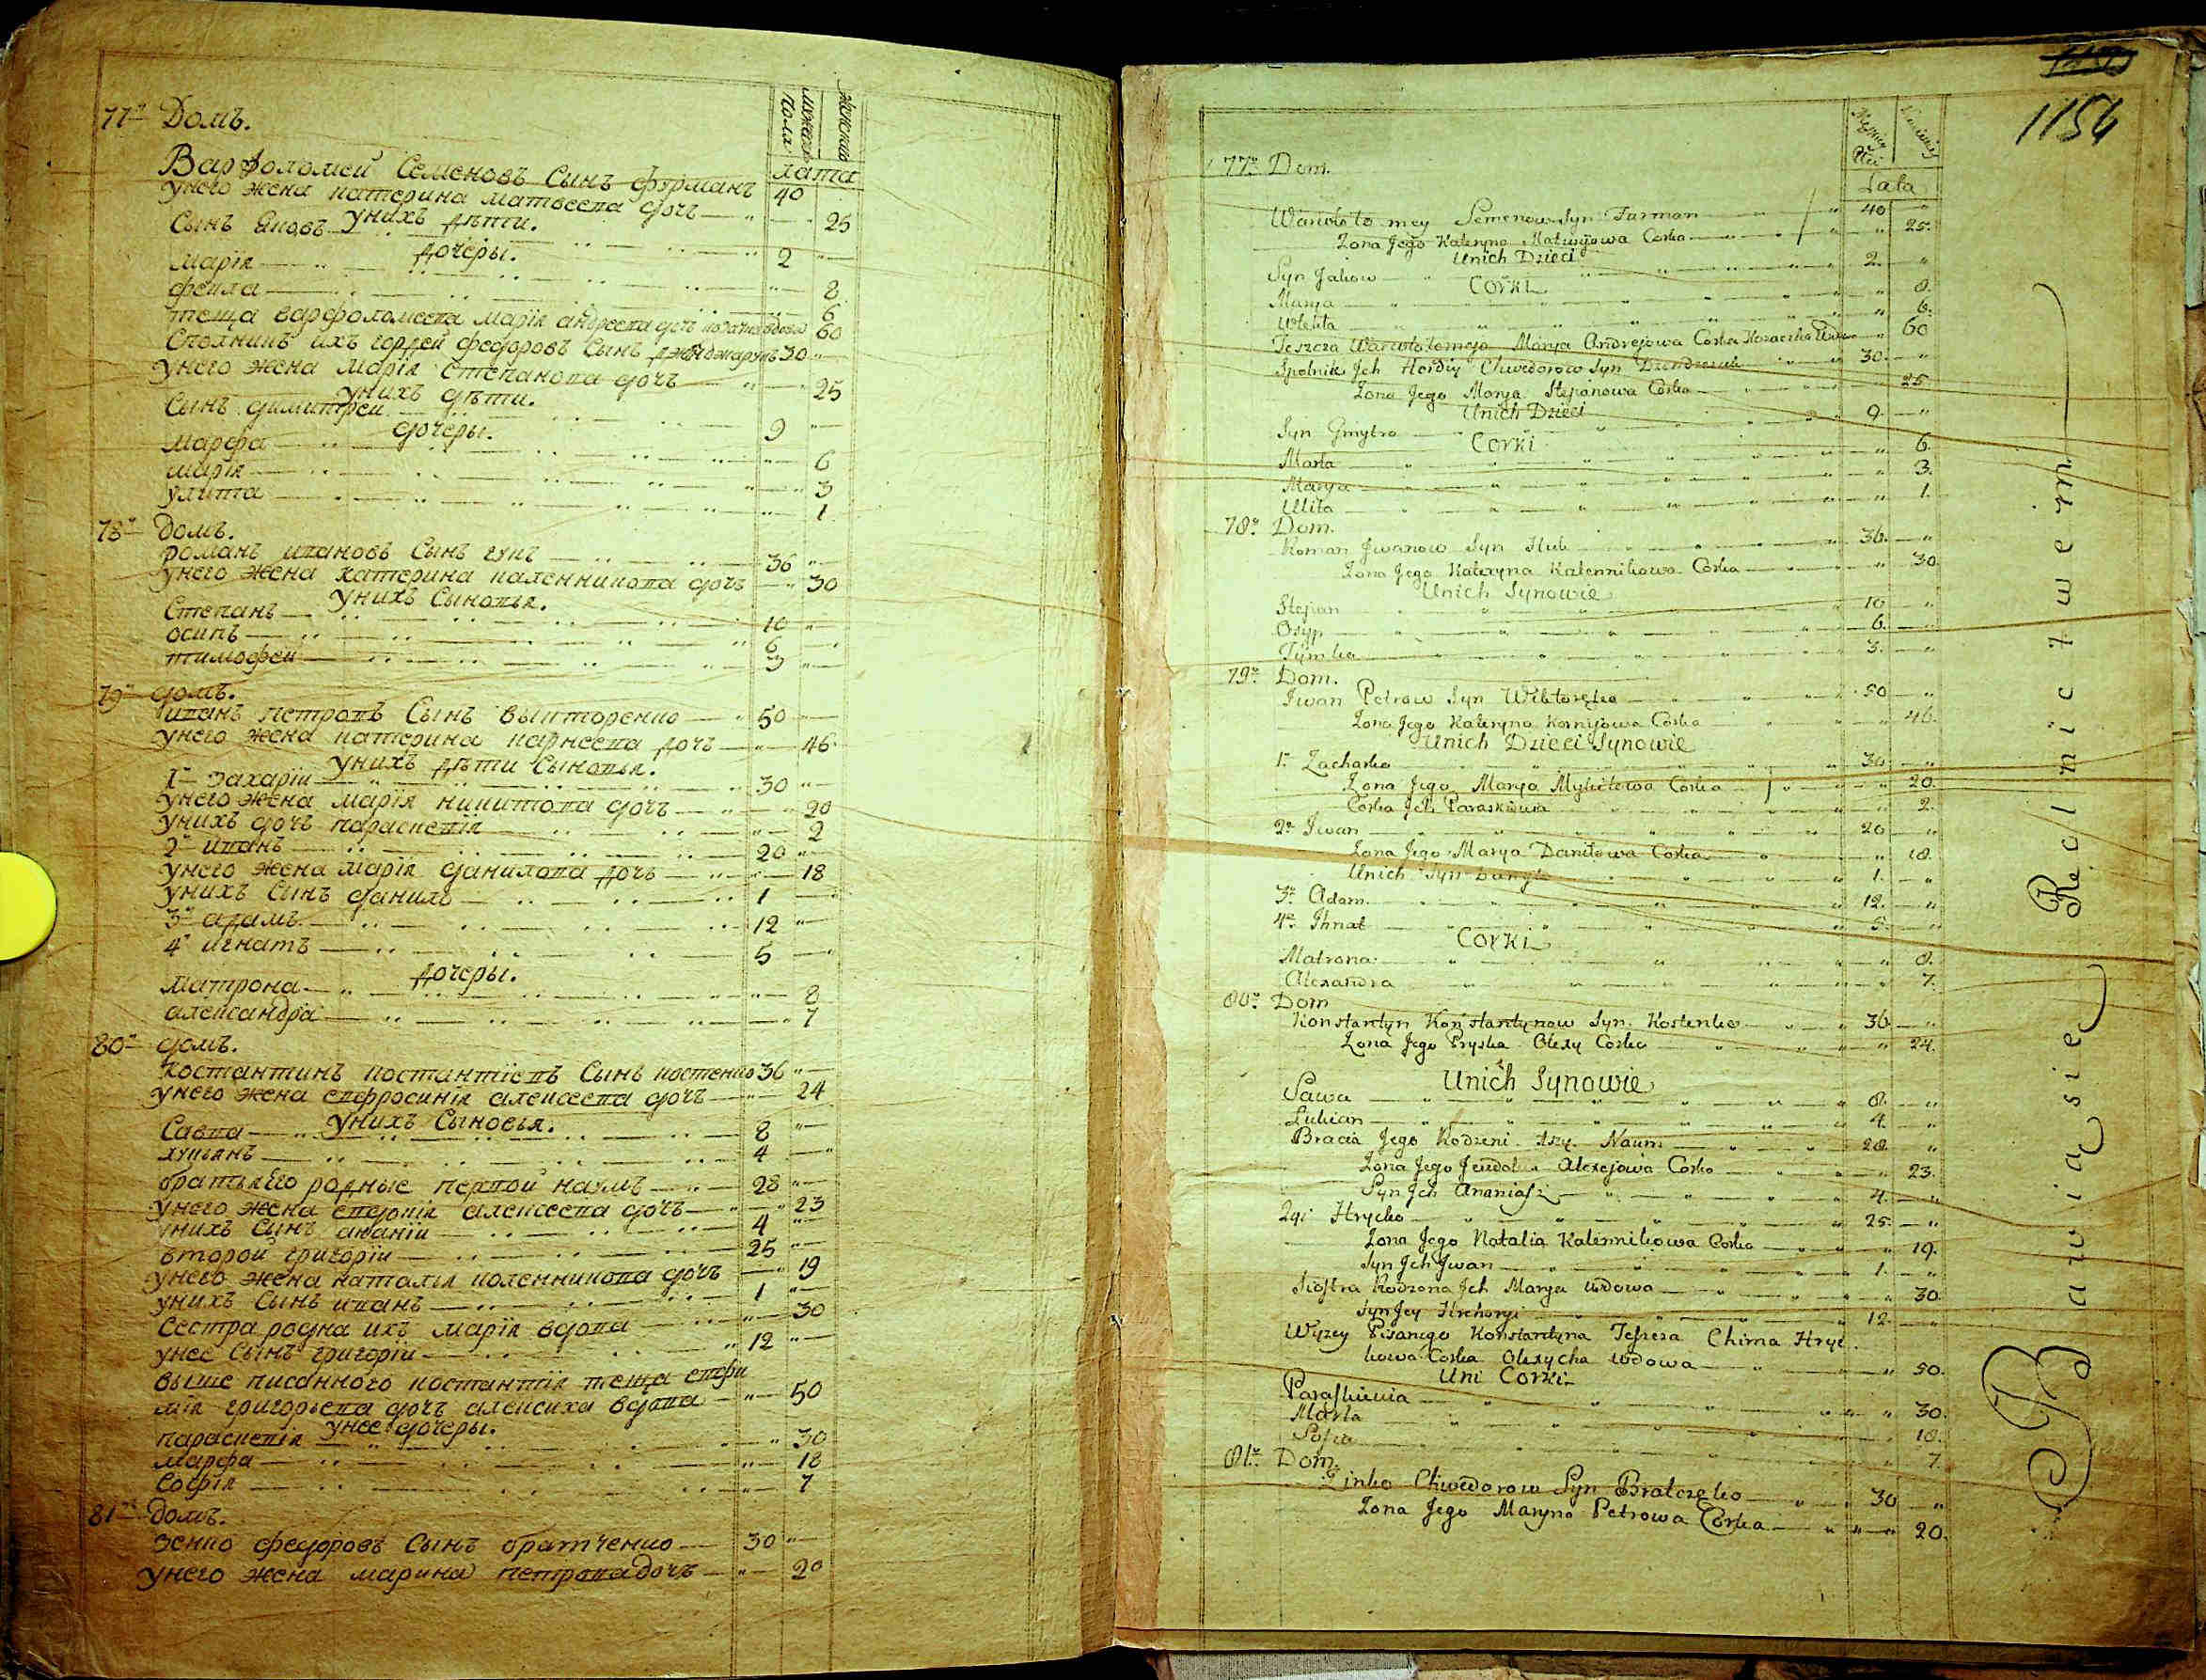 77го Домъ.
мужеска пола
женска
лата
Варфоломей Семеновъ Сынъ фурманъ 40
унего жена катерина матвеева дочь 25
унихъ дѣти.
Сынъ Яковъ 2
дочеры.
марія 8
фекла 6
теща варфоломеева марія андреева дочъ вдова 60
Сполникъ ихъ гордей федоровъ Сынъ 30
унего жена марія Степанова дочъ 25
унихъ дѣти.
Сынъ димитрей 9
дочеры.
марфа 6
марія 3
улита 1
78й домъ.
романъ ивановъ Сынъ 36
унего жена катерина каленникова дочъ 30
унихъ Сыновья.
Степанъ 10
осипъ 6
тимофей 3
79й домъ.
иванъ петровъ Сынъ выкторенко 50
унего жена катерина корнеева дочъ 46
унихъ дѣти Сыновья.
1й захарій 30
унего жена марія никитова дочъ 20
унихъ дочъ параскевія 2
2й иванъ 20
унего жена марія данилова дочъ 18
унихъ Сынъ данило 1
3й адамъ 12
4й игнатъ 5
дочеры.
матрона 8
александра 7
80й домъ.
костантинъ костантіевъ Сынъ костенко 36
унего жена евфросинія алексеева дочъ 24
унихъ Сыновья.
Савва 8
лукіянъ 4
братья его родные первой наумъ 28
унего жена евдокія алексеева дочъ 23
унихъ Сынъ ананій 4
второй григорій 25
унего жена наталья коленникова дочъ 19
унихъ Сынъ иванъ 1
Сестра родна ихъ марія вдова 30
унее Сынъ григорій 12
выше писанного костантія теща евфи
мія григорьева дочъ алексиха вдова 50
унее дочеры.
параскевія 30
марфа 18
Софія 7
81й домъ.
зенко федоровъ Сынъ братченко 30
унего жена марина петрова дочъ 20
1154
77o Dom.
Męzkiey Płci
Lata
Warwołomey Semenow Syn Furman 40
Zona Jego Kateryna Matwijowa Corka 25.
Unich Dzieci
Syn Jakow 2.
Corki
Marya 8.
Wekla 6.
Teszcza Warwołomeja Marya Andrejowa Corka Wdowa 60
Spolnik Jch Hordiy Chwedorow Syn 30.
Zona Jego Marya Stepanowa Corka 25
Unich Dzieci
Syn Dmytro 9.
Corki
Marta 6.
Marya 3.
Ulita 1.
78o Dom.
Roman Jwanow Syn 36.
Zona Jego Kateryna Kalennikowa Corka 30
Unich Synowie
Stepan 10
Osyp 6.
Tymko 3.
79o Dom.
Jwan Petrow Syn Wiktoręko 50
Zona Jego Kateryna Kornijowa Corka 46.
Unich Dzieci Synowie
1o Zacharko 30
Zona Jego Marya Mykitowa Corka 20.
Corka Jch Paraskiewia 2.
2o Jwan 20
Zona Jego Marya Daniłowa Corka 18.
Unich Syn Danyło 1.
3o Adam 12.
4o Ihnat 5.
Corki
Matrona 8.
Alexandra 7.
80o Dom
Konstantyn Konstantynow Syn Kostenko 36
Zona Jego Pryska Olexy Corka 24.
Unich Synowie
Sawa 8.
Lukian 4.
Bracia Jego Rodzeni 1szy Naum 28.
Zona Jego Jewdokia Alexejowa Corka 23.
Syn Jch Ananiasz 4.
2gi Hrycko 25.
Zona Jego Natalia Kalennikowa Corka 19.
Syn Jch Jwan 1.
Siostra Rodzona Jch Marya wdowa 30
Syn Jey Hrehory 12.
Wyzey Pisanego Konstantyna Teszcza Chima Hryc
kowa Corka Olexycha wdowa 50.
Uni Corki
Paraskiewia 30.
Marta 18.
Sofia 7.
81o Dom.
Zinko Chwedorow Syn Bratczęko 30
Zona Jego Maryna Petrowa Corka 20.
Bawiąsię Rolnictwem